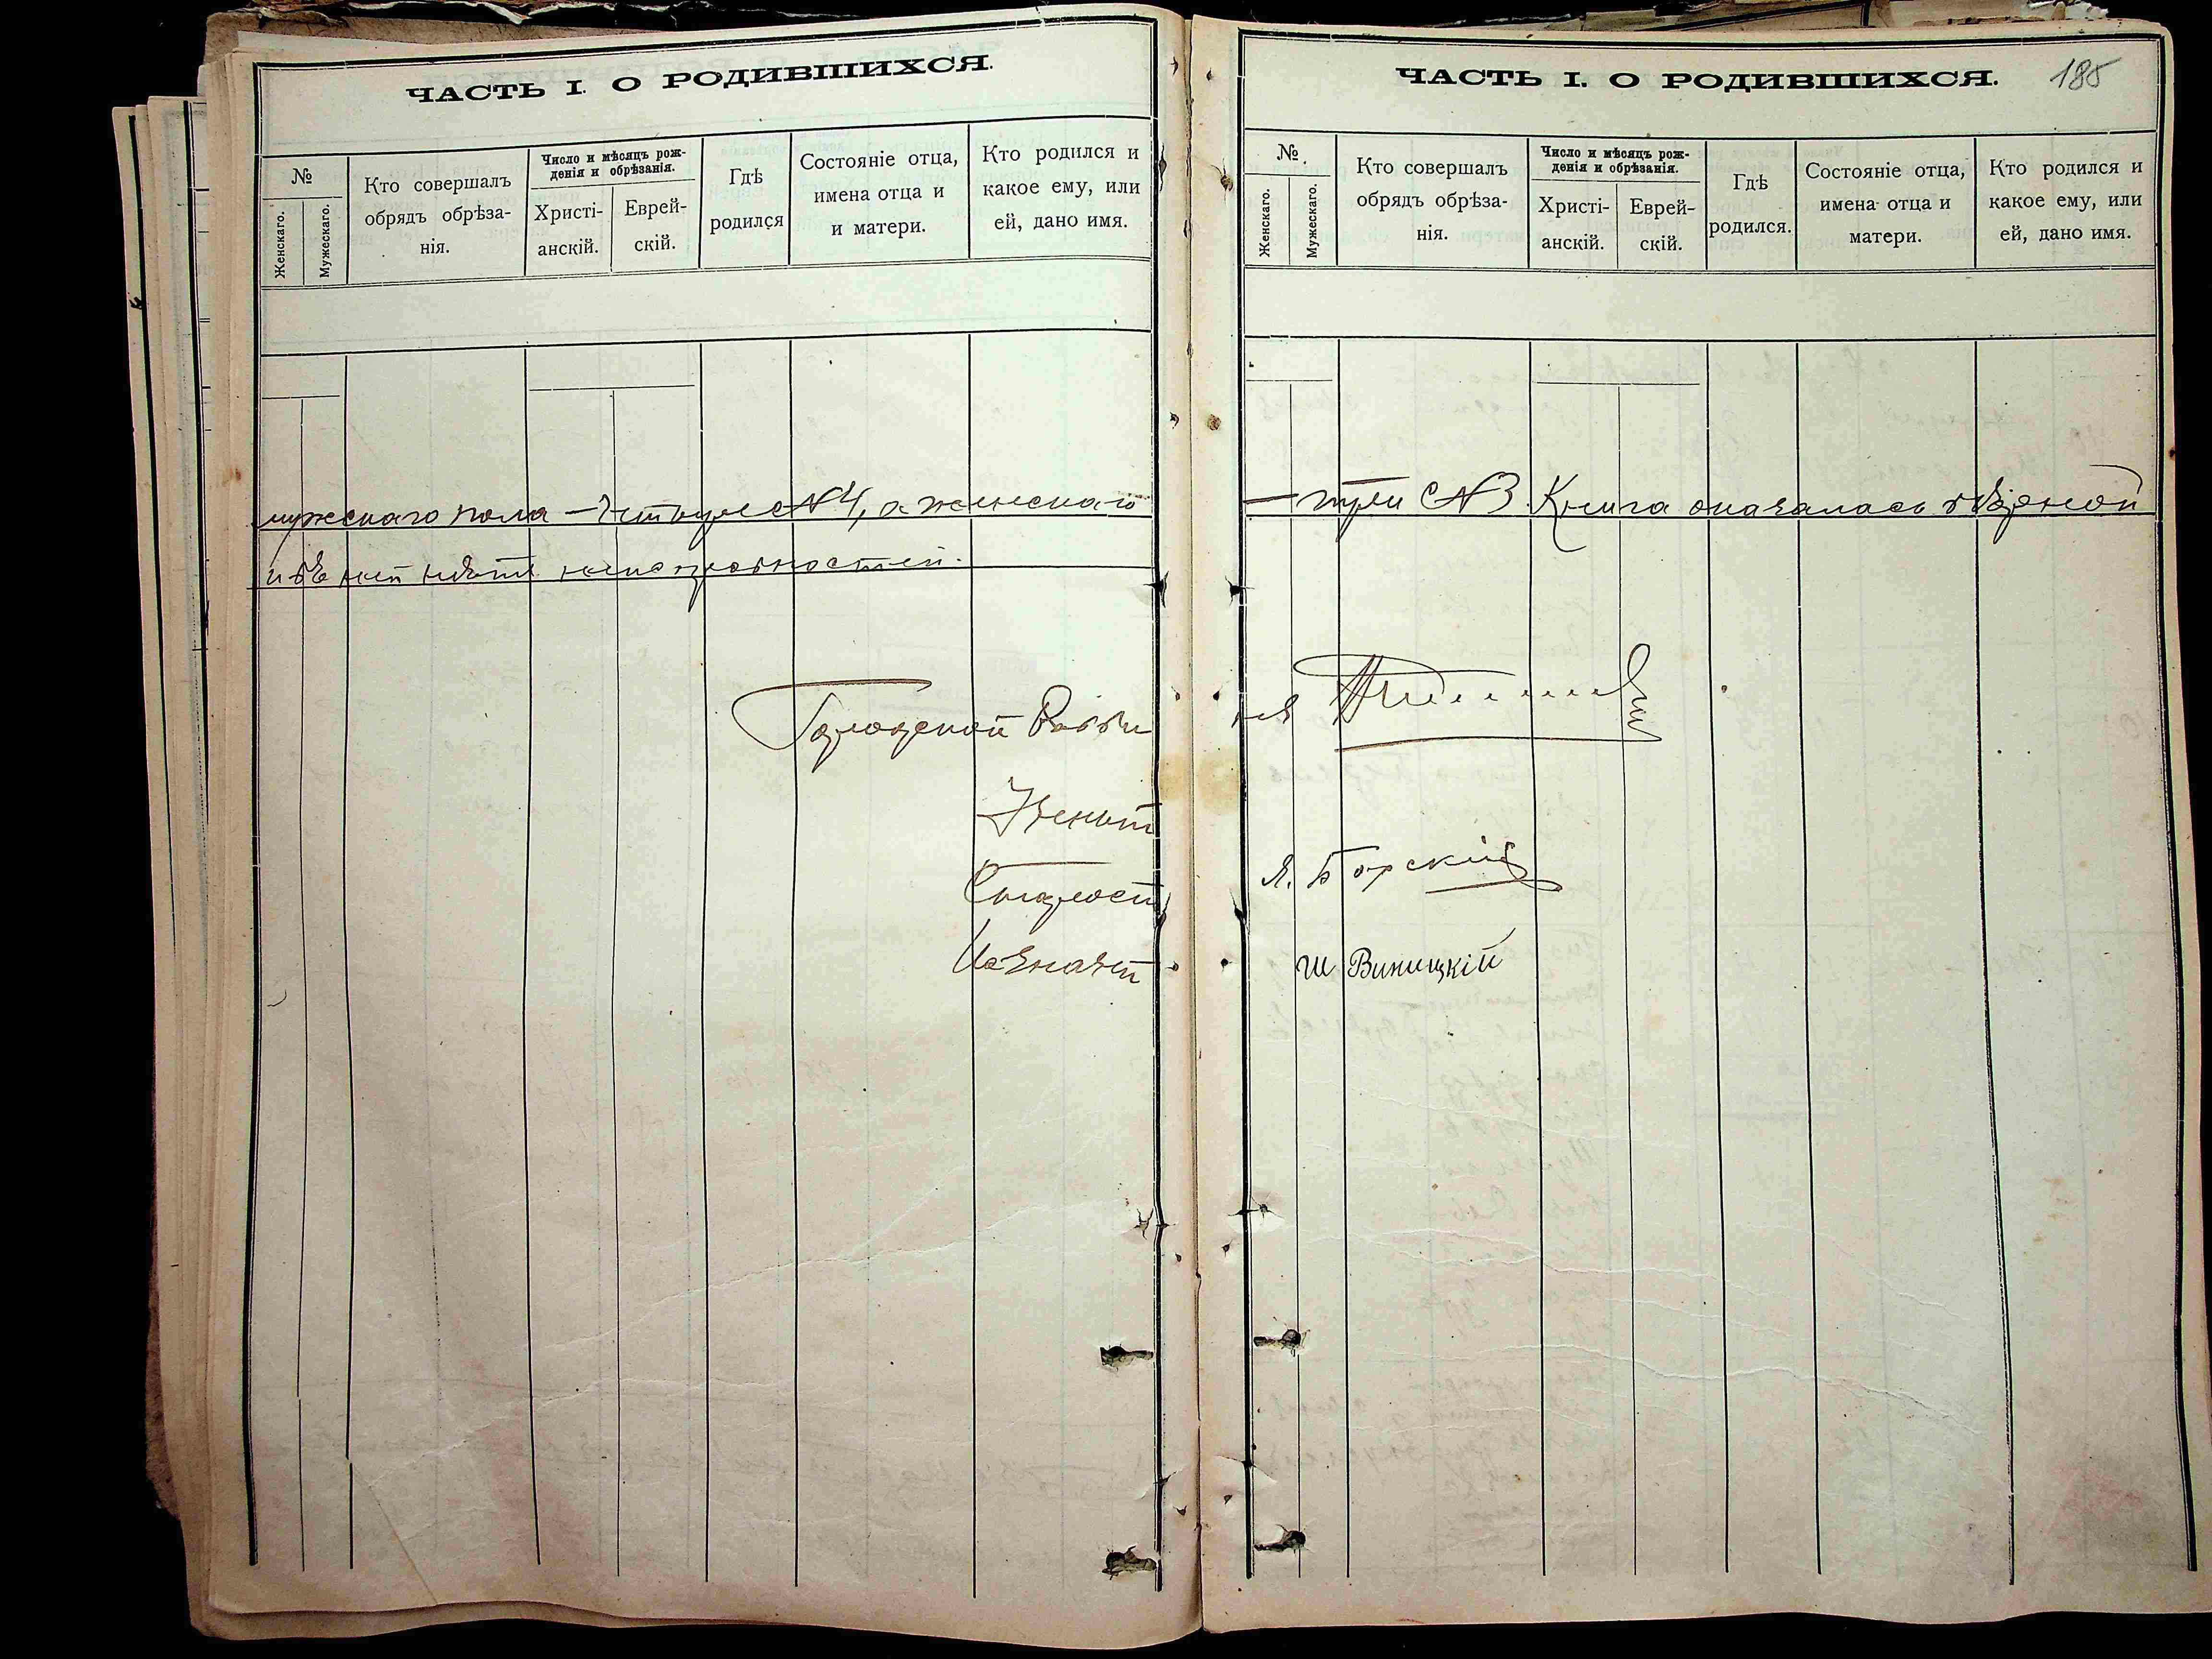 ЧАСТЬ I. О РОДИВШИХСЯ.
№
Женскаго.
Мужескаго.
Кто совершалъ
обрядъ обрѣза-
нія.
Число и мѣсяцъ рож-
денія и обрѣзанія.
Христі-
анскій.
Еврей-
скій.
Гдѣ
родился
Состояніе отца,
имена отца и
и матери.
Кто родился и
какое ему, или
ей, дано имя.
мужескаго пола - № 4, а женскаго
и въ ней нѣтъ неисправностей.
Городской Раввин
Ученый
Староста
Казначей
ЧАСТЬ I. О РОДИВШИХСЯ.
185
№
Женскаго.
Мужескаго.
Кто совершалъ
обрядъ обрѣза-
нія.
Число и мѣсяцъ рож-
денія и обрѣзанія.
Христі-
анскій.
Еврей-
скій.
Гдѣ
родился.
Состояніе отца,
имена отца и
матери.
Кто родился и
какое ему, или
ей, дано имя.
- три № 3. Книга оказалась вѣрной
Я. Борскій
Ш Виницкій